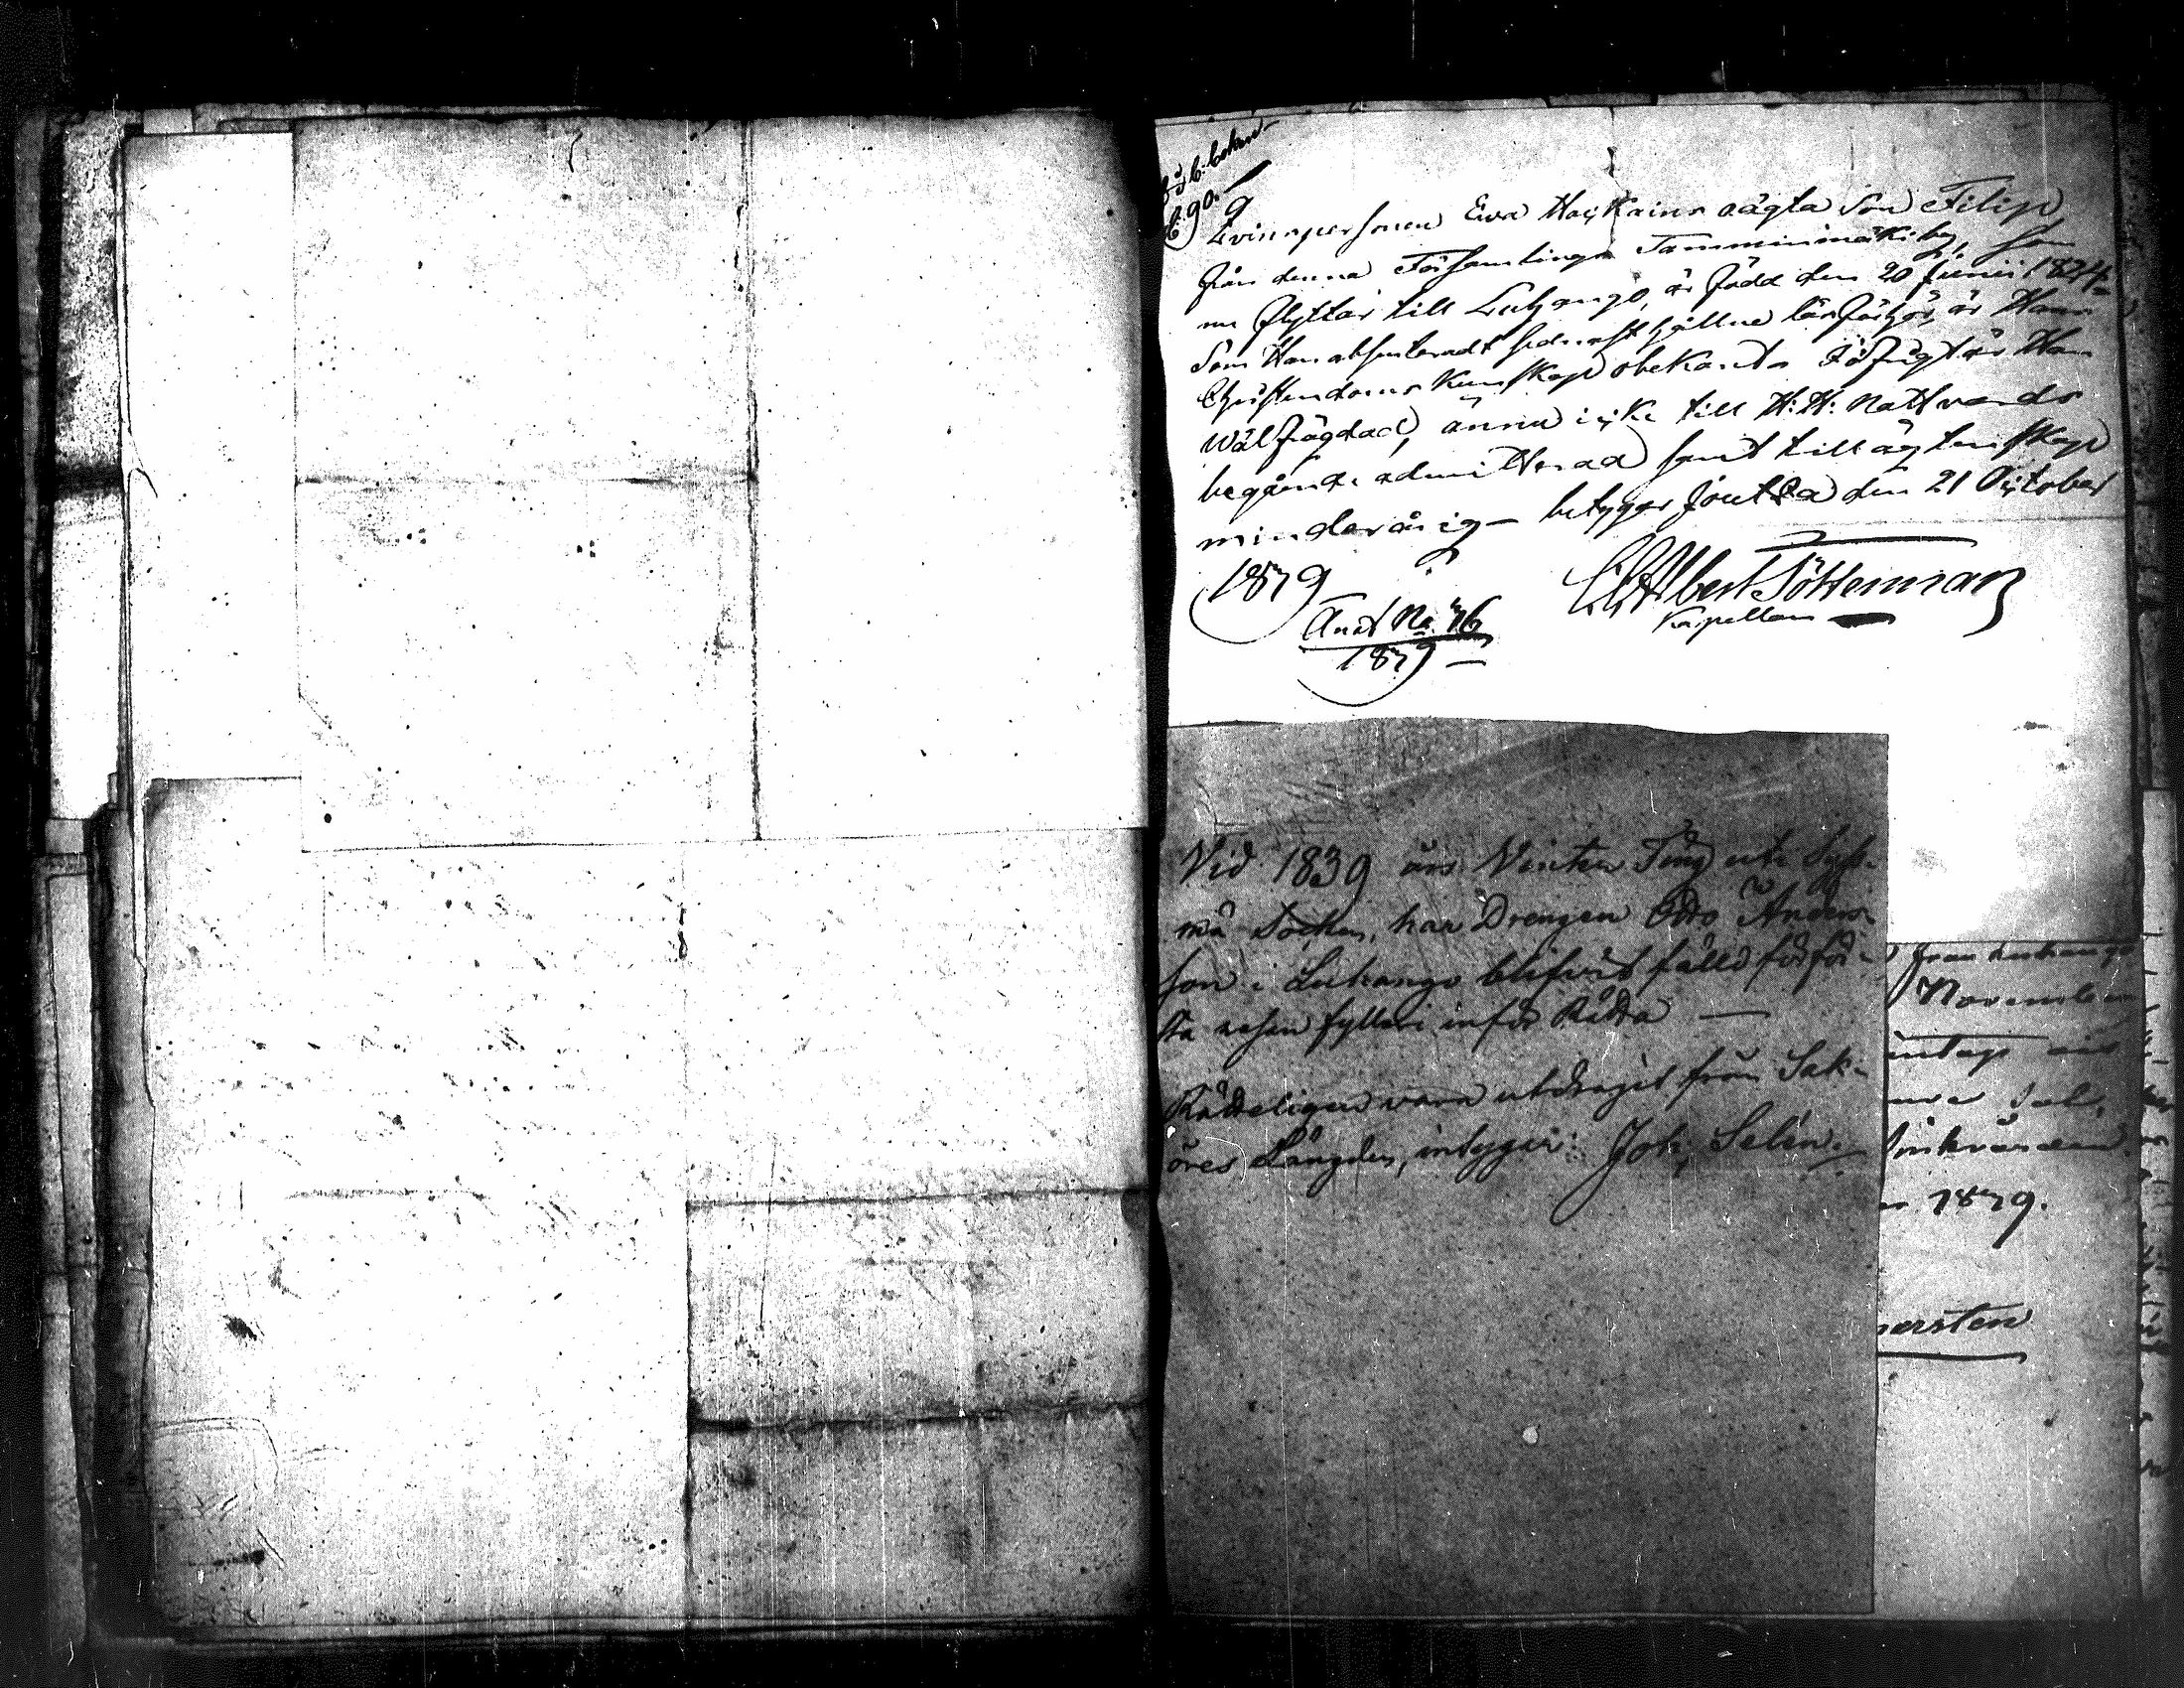 C. 90.
9
Qvinspersonen Ewa Maj Kains oägta Son Filip
från denna Församlings Tamminmäki by, som
nu flyttar till Luhango, är född den 20 Junii 1824
Som Han absenteradt sednast hållne läsförhör, är Hans
Christendoms Kunskap obekant. Frögdt är Han
Wälfrägdad, ännu icke till H: H: Nattvards
begående admitterad samt till ägtenskap
minderårig – betygar Joutsa den 21 October
1839
Albert Töttermar
Kapellan
Anat No 76
1839 –
Vid 1839 års Vinter Ting uti Sys-
mä Socken, har Drengen Otto Anders-
son i Luhango blifvit fälld för för-
sta resan fylleri inför Rätta —
Rätteligen vara utdragit från Sak-
öres Längden, intygar: Joh, Selin.
från Luhango
November
intag
1839.
ersten